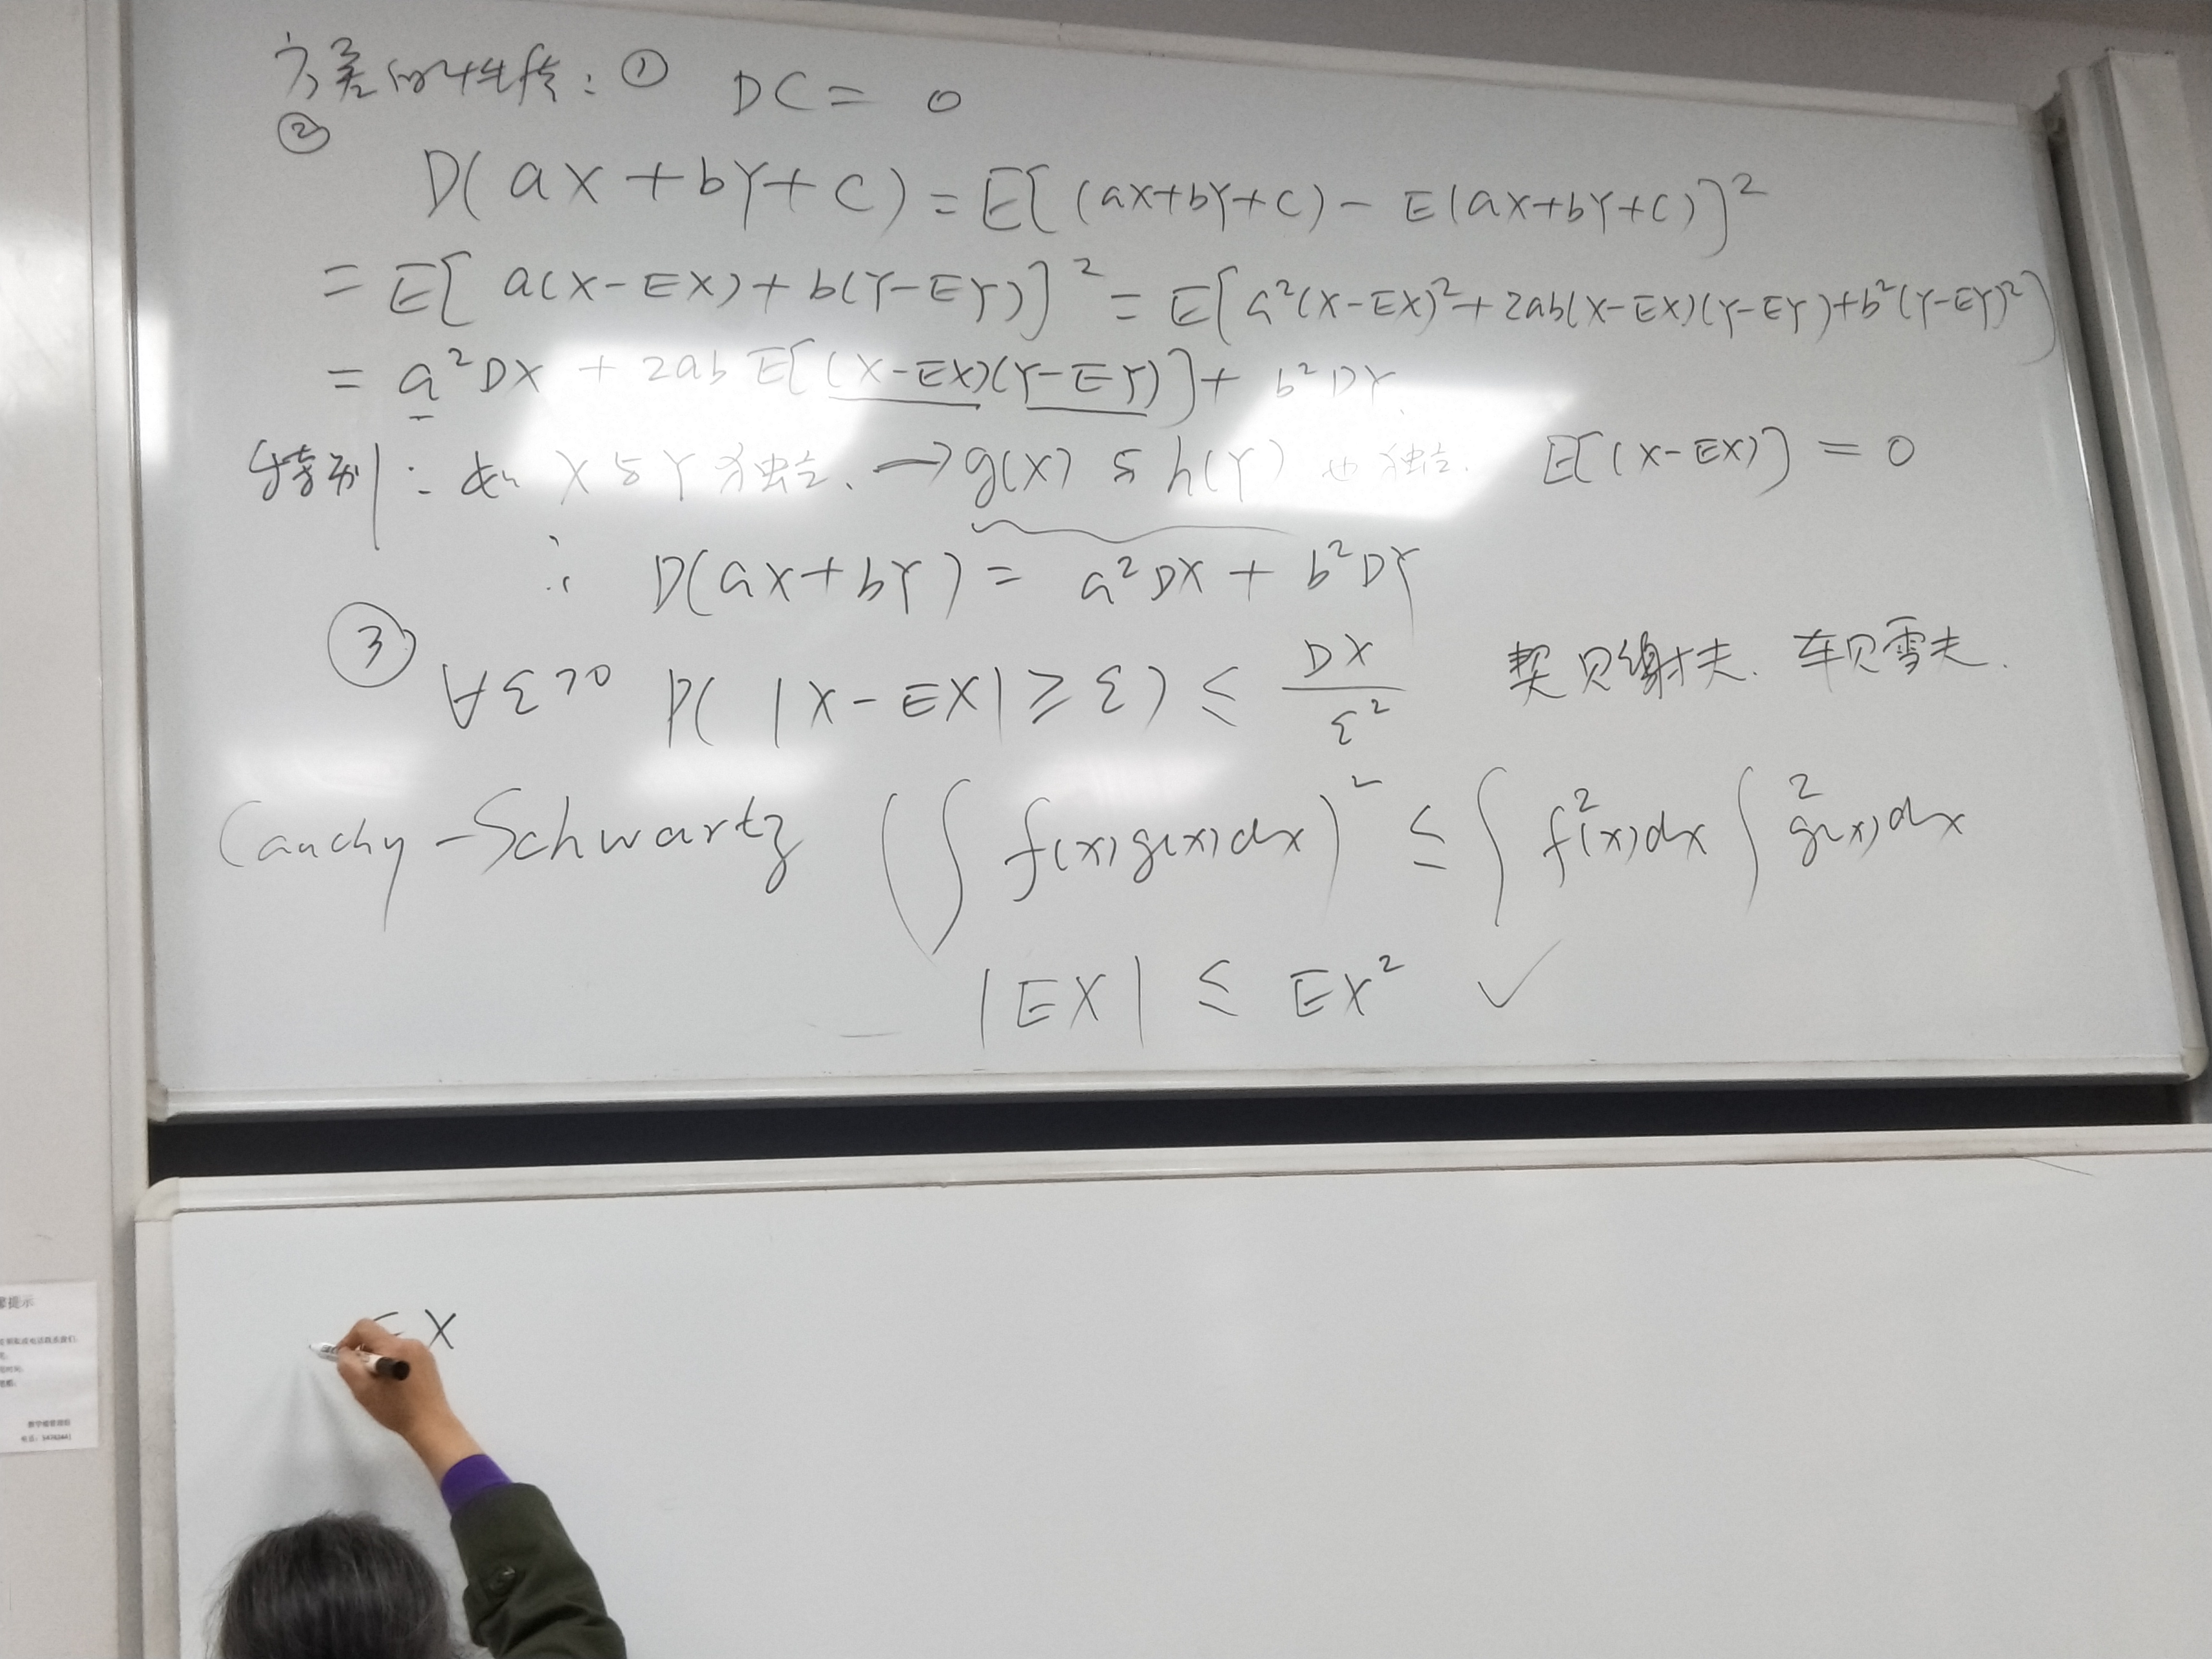 方差的性质：① DC = 0
②
D(aX+bY+C) = E[(aX+bY+C) - E(aX+bY+C)]²
= E[a(X-EX)+b(Y-EY)]² = E[a²(X-EX)²+2ab(X-EX)(Y-EY)+b²(Y-EY)²]
= a²DX + 2ab E[(X-EX)(Y-EY)] + b²DY.
特别：如 X与Y独立. → g(X) 与 h(Y) 也独立. E[(X-EX)] = 0
∴ D(aX+bY) = a²DX + b²DY
③ ∀ε>0 P(|X-EX| ≥ ε) ≤ DX/ε² 契贝谢夫. 车贝雪夫.
Cauchy-Schwartz (∫f(x)g(x)dx)² ≤ ∫f²(x)dx ∫g²(x)dx
|EX| ≤ EX² ✓
EX
提示